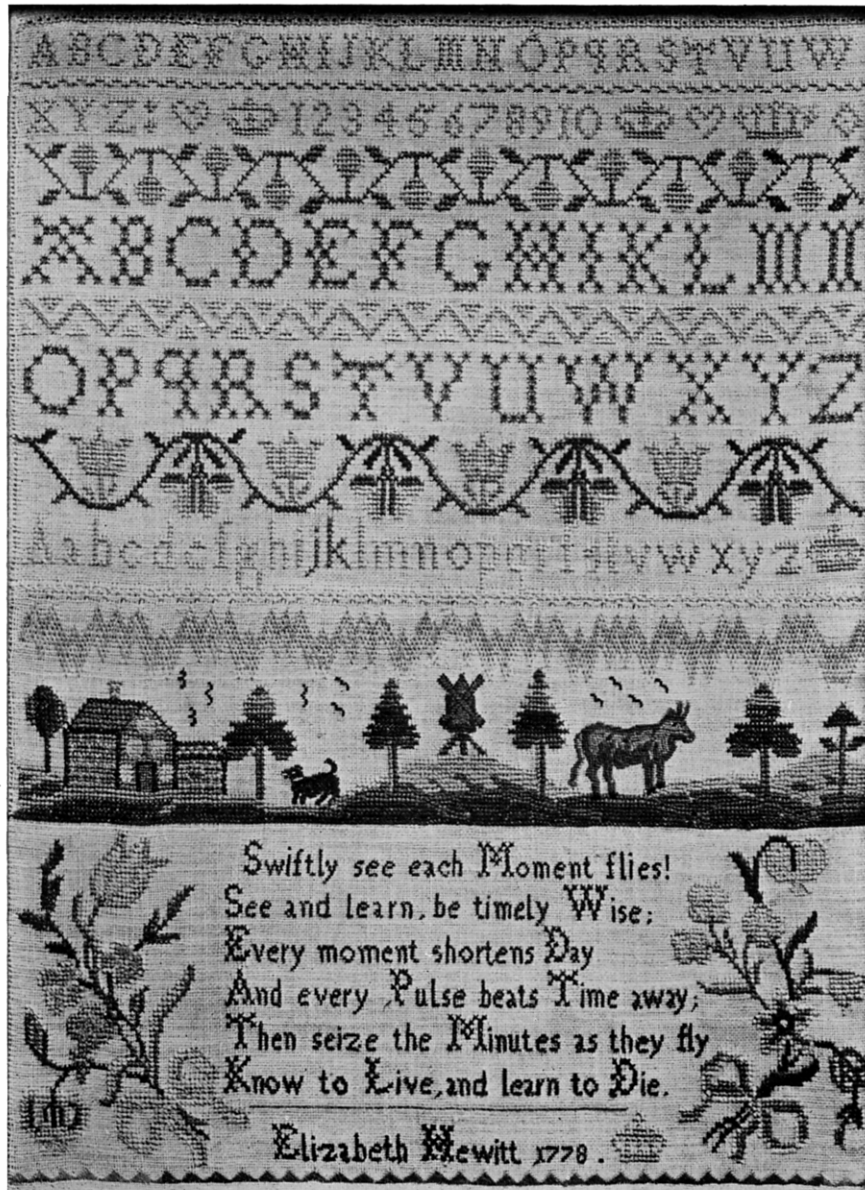 ABCDEFGHIJKLMNOPQRSTVUW
XYZ: 12345678910
ABCDEFGHIKLMN
OPQRSTVUWXYZ
Aabcdefghijklmnopqrſstvwxyz
Swiftly see each Moment flies!
See and learn, be timely Wise;
Every moment shortens Day
And every Pulse beats Time away;
Then seize the Minutes as they fly
Know to Live, and learn to Die.
Elizabeth Hewitt 1778.